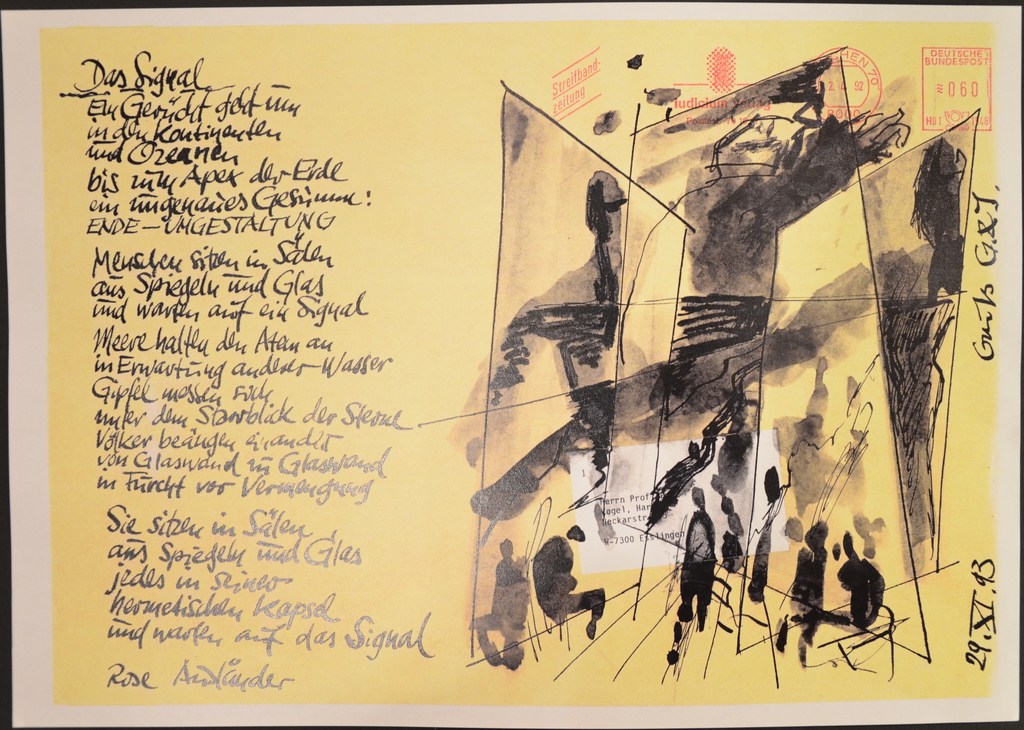 Das Signal
Ein Gerücht geht um
in den Kontinenten
und Ozeanen
bis zum Apex der Erde
ein ungenaues Gesumme:
ENDE – UMGESTALTUNG
Menschen sitzen in Sälen
aus Spiegeln und Glas
und warten auf ein Signal
Meere halten den Atem an
in Erwartung anderer Wasser
Gipfel messen sich
unter dem Starrblick der Sterne
Völker beäugen einander
von Glaswand zu Glaswand
in Furcht vor Vermengung
Sie sitzen in Sälen
aus Spiegeln und Glas
jedes in seiner
hermetischen Kapsel
und warten auf das Signal
Rose Ausländer
Streifband-
zeitung
iudicium verlag
HEN 70
92
DEUTSCHE
BUNDESPOST
060
1
Herrn Prof
Vogel, Har
Neckarstr
W-7300 Esslingen
29.XI.93